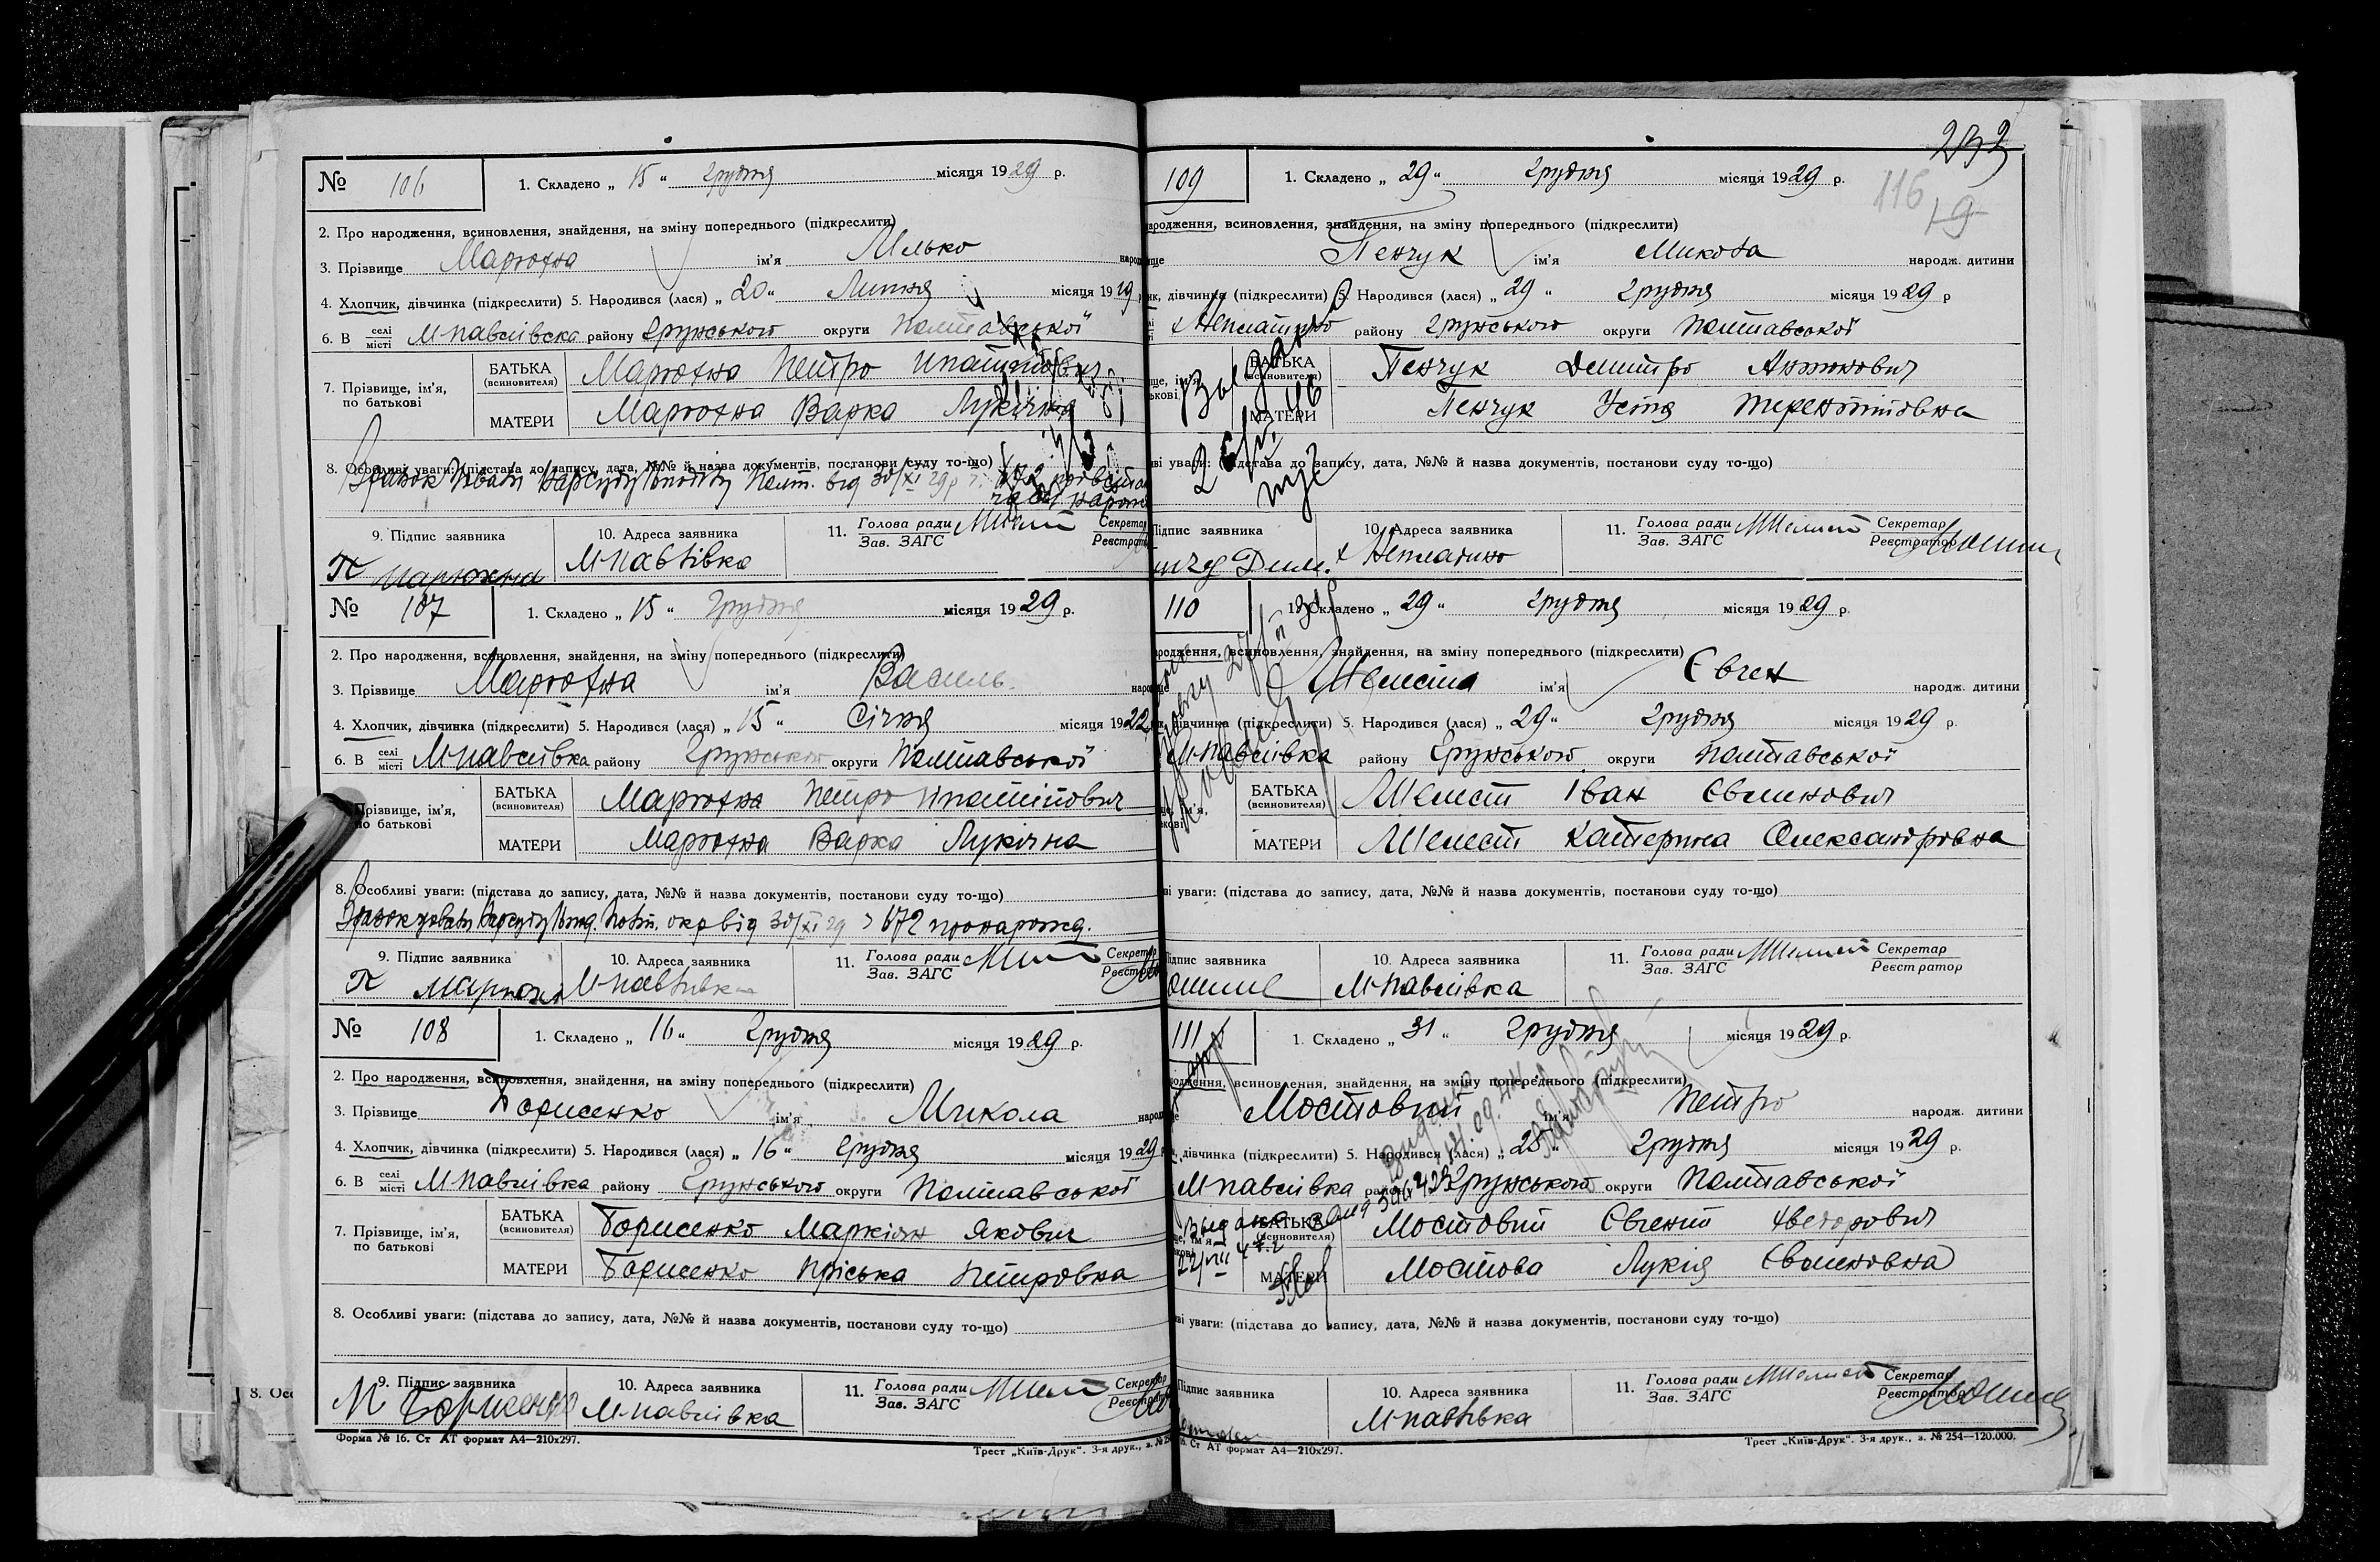 № 106 1. Складено „ 15 “ грудня місяця 1929 р.
2. Про народження, всиновлення, знайдення, на зміну попереднього (підкреслити)
3. Прізвище Марюхна ім'я Мелько
4. Хлопчик, дівчинка (підкреслити) 5. Народився (лася) „ 20 “ Липня місяця 1919
6. В селі/місті М-Павлівка району Грунського округи Полтавської
7. Прізвище, ім'я, по батькові
БАТЬКА (всиновителя) Марюхна Петро Ипатієвич
МАТЕРИ Марюхна Варка Лукічна
8. Особливі уваги: (підстава до запису, дата, №№ й назва документів, постанови суду то-що)
Полт. від 30/XI 29р
9. Підпис заявника 10. Адреса заявника 11. Голова ради Секретар
Зав. ЗАГС Реєстратор
П Марюхна М-Павлівка
№ 107 1. Складено „ 15 “ грудня місяця 1929 р.
2. Про народження, всиновлення, знайдення, на зміну попереднього (підкреслити)
3. Прізвище Марюхна ім'я Василь
4. Хлопчик, дівчинка (підкреслити) 5. Народився (лася) „ 15 “ Січня місяця 1922
6. В селі/місті М-Павлівка району Грунського округи Полтавської
Прізвище, ім'я, по батькові
БАТЬКА (всиновителя) Марюхна Петро Ипатійович
МАТЕРИ Марюхна Варка Лукічна
8. Особливі уваги: (підстава до запису, дата, №№ й назва документів, постанови суду то-що)
окр від 30/XI 29 672 про народж.
9. Підпис заявника 10. Адреса заявника 11. Голова ради Секретар
Зав. ЗАГС
П Марюхна М-Павлівка
№ 108 1. Складено „ 16 “ грудня місяця 1929 р.
2. Про народження, всиновлення, знайдення, на зміну попереднього (підкреслити)
3. Прізвище Борисенко ім'я Микола
4. Хлопчик, дівчинка (підкреслити) 5. Народився (лася) „ 16 “ грудня місяця 1929
6. В селі/місті М-Павлівка району Грунського округи Полтавської
7. Прізвище, ім'я, по батькові
БАТЬКА (всиновителя) Борисенко Маркіян Якович
МАТЕРИ Борисенко Пріська Петровна
8. Особливі уваги: (підстава до запису, дата, №№ й назва документів, постанови суду то-що)
9. Підпис заявника 10. Адреса заявника 11. Голова ради Секретар
Зав. ЗАГС
М Борисенко М-Павлівка
Форма № 16. Ст АТ формат А4—210х297. Трест „Київ-Друк“. 3-я друк., з. №
116
19
109 1. Складено „ 29 “ грудня місяця 1929 р.
народження, всиновлення, знайдення, на зміну попереднього (підкреслити)
Пенчук ім'я Микола народж. дитини
дівчинка (підкреслити) 5. Народився (лася) „ 29 “ грудня місяця 1929 р
району Грунського округи Полтавської
БАТЬКА (всиновителя) Пенчук Дмитро Антонович
МАТЕРИ Пенчук Устя Терентіївна
уваги: (підстава до запису, дата, №№ й назва документів, постанови суду то-що)
Підпис заявника 10. Адреса заявника 11. Голова ради Секретар
Зав. ЗАГС Реєстратор
110 1. Складено „ 29 “ грудня місяця 1929 р.
всиновлення, знайдення, на зміну попереднього (підкреслити)
Шелеста ім'я Євген народж. дитини
дівчинка (підкреслити) 5. Народився (лася) „ 29 “ грудня місяця 1929 р.
М-Павлівка району Грунського округи Полтавської
БАТЬКА (всиновителя) Шелест Іван Євменович
МАТЕРИ Шелест Катерина Олександровна
уваги: (підстава до запису, дата, №№ й назва документів, постанови суду то-що)
Підпис заявника 10. Адреса заявника 11. Голова ради Секретар
Зав. ЗАГС Реєстратор
М-Павлівка
111 1. Складено „ 31 “ грудня місяця 1929 р.
всиновлення, знайдення, на зміну попереднього (підкреслити)
Мостовий ім'я Петро народж. дитини
дівчинка (підкреслити) 5. Народився (лася) „ 28 “ грудня місяця 1929 р.
М-Павлівка району Грунського округи Полтавської
БАТЬКА (всиновителя) Мостовий Євгений
МАТЕРИ Мостова Лукія Євменовна
уваги: (підстава до запису, дата, №№ й назва документів, постанови суду то-що)
Підпис заявника 10. Адреса заявника 11. Голова ради Секретар
Зав. ЗАГС Реєстратор
М-Павлівка
Ст АТ формат А4—210х297. Трест „Київ-Друк“. 3-я друк., з. № 254—120.000.